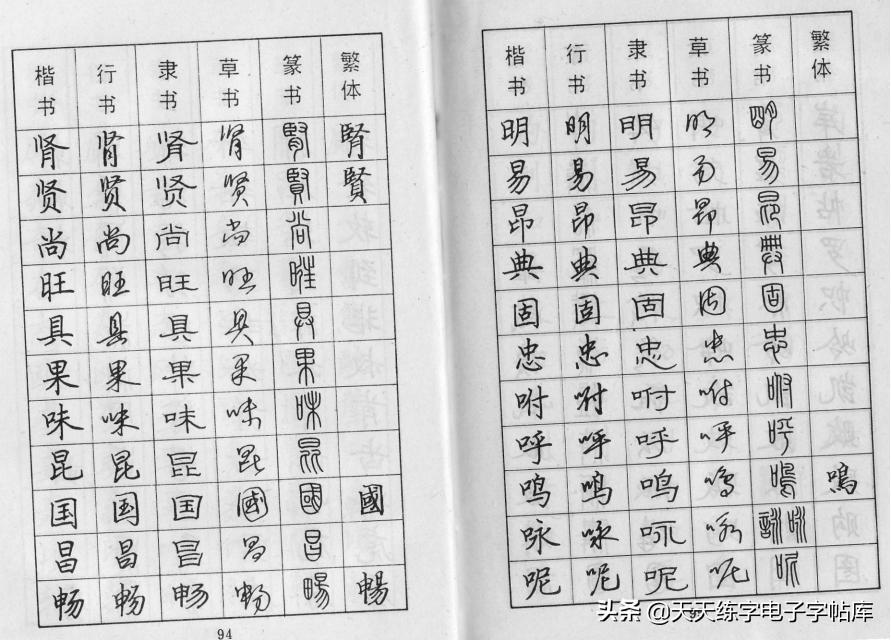 楷书 行书 隶书 草书 篆书 繁体
肾 肾 肾 肾 腎 腎
贤 贤 贤 贤 賢 賢
尚 尚 尚 尚 尚
旺 旺 旺 旺 旺
具 具 具 具 具
果 果 果 果 果
味 味 味 味 味
昆 昆 昆 昆 昆
国 国 国 國 國 國
昌 昌 昌 昌 昌
畅 畅 畅 畅 暢 暢
94
楷书 行书 隶书 草书 篆书 繁体
明 明 明 明 明
易 易 易 易 易
昂 昂 昂 昂 昂
典 典 典 典 典
固 固 固 固 固
忠 忠 忠 忠 忠
咐 咐 咐 咐 咐
呼 呼 呼 呼 呼
鸣 鸣 鸣 鸣 鳴 鳴
咏 咏 咏 咏 詠咏
呢 呢 呢 呢 呢
头条 @天天练字电子字帖库